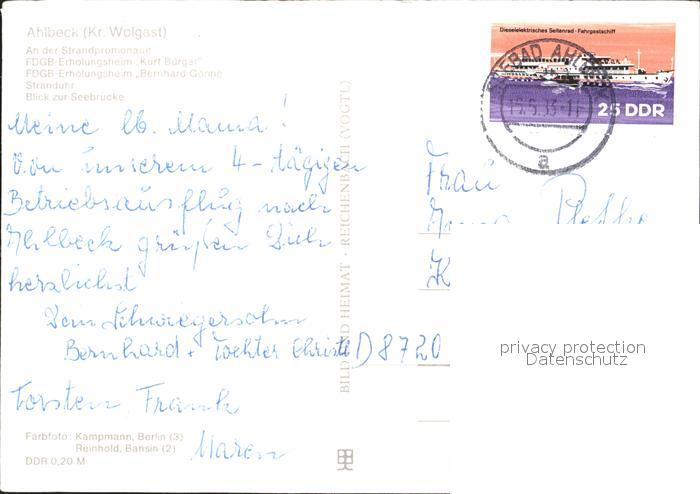 Ahlbeck (Kr. Wolgast)
An der Strandpromenade
FDGB-Erholungsheim „Kurt Bürger"
FDGB-Erholungsheim „Bernhard Göring"
Stranduhr
Blick zur Seebrücke
Meine lb. Mama!
Von unserem 4-tägigen
Betriebsausflug nach
Ahlbeck grüßen Dich
herzlichst
Dein Schwiegersohn
Bernhard + Tochter Christl
Torsten, Frank
Maren
Farbfoto: Kampmann, Berlin (3)
Reinhold, Bansin (2)
DDR 0,20 M
BILD UND HEIMAT · REICHENBACH (VOGTL)
Dieselelektrisches Seitenrad-Fahrgastschiff
25 DDR
SEEBAD AHLBECK
a
Frau
D 8720
privacy protection
Datenschutz